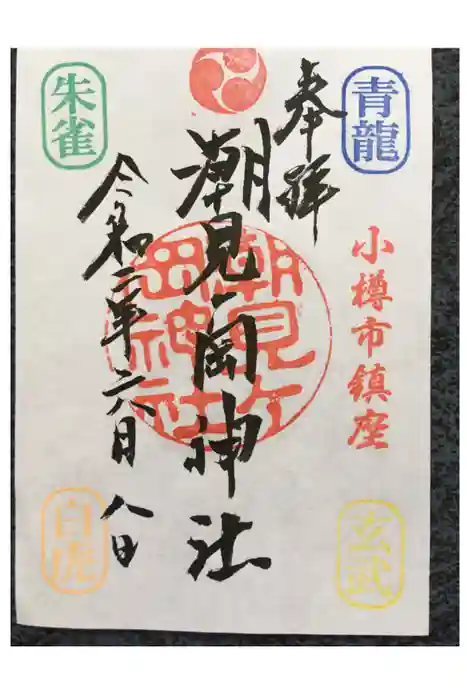 奉拝
青龍
小樽市鎮座
玄武
潮見ヶ岡神社
潮見ヶ岡神社
朱雀
令和二年六月八日
白虎